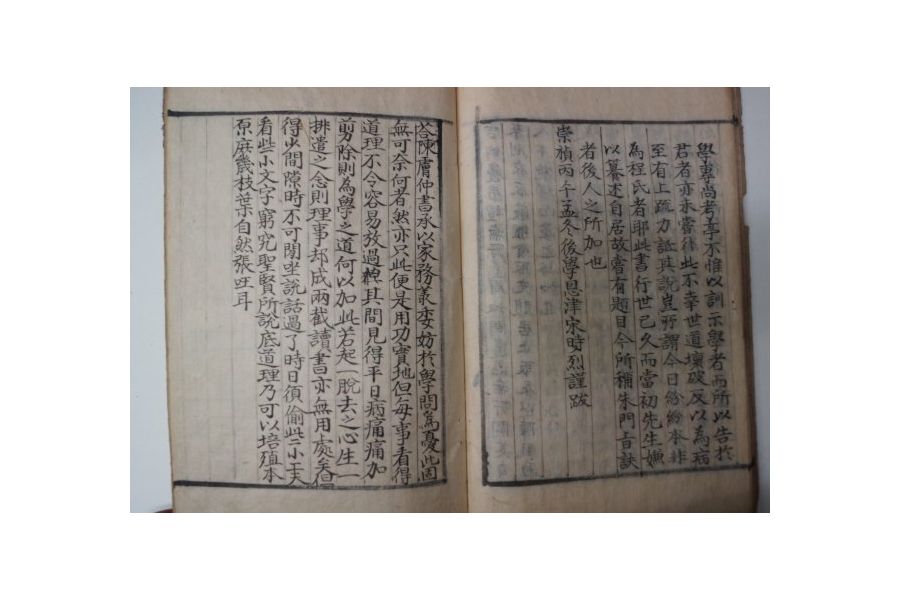 學專尚考亭不惟以訓示學者而所以告於
君者亦未嘗此不幸世道壞破反以為病
至有上疏力詆其說豈所謂今日紛紛本非
為程氏者耶此書行世已久而當初先生嫌
以纂述自居故有題目今所稱朱門旨訣
者後人之所加也
崇禎丙午孟冬後學恩津宋時烈謹跋
答陳膚仲書承以家務叢委妨於學問為憂此固
無可奈何者然亦只此便是用功實地但每事看得
道理不令容易放過其間見得平日病痛痛加
剪除則為學之道何以加此若起一脫去之心生一
排遣之念則理事却成兩截讀書亦無用處矣但
得少間隙時不可閑坐說話過了時日須偷些小工夫
看些小文字窮究聖賢所說底道理乃可以培殖本
原庶幾枝葉自然張旺耳